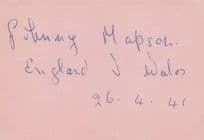 Johnny Mapson.
England V Wales
26. 4. 41